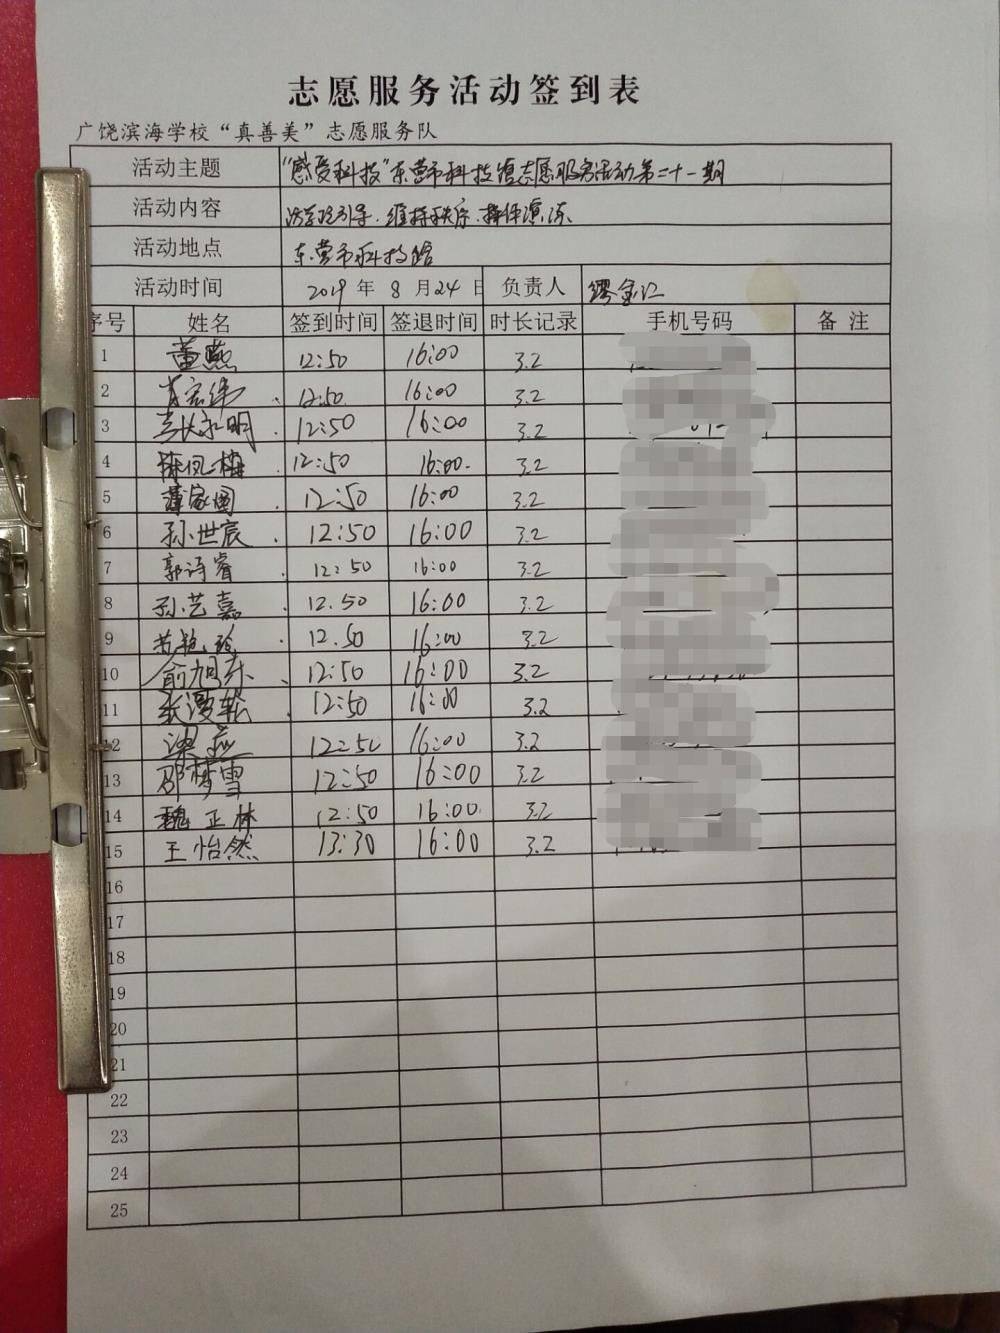 志愿服务活动签到表
广饶滨海学校“真善美”志愿服务队
活动主题 “感受科技”东营市科技馆志愿服务活动第二十一期
活动内容 引导.维持秩序.
活动地点 东营市科技馆
活动时间 2019 年 8 月 24 日 负责人
序号 姓名 签到时间 签退时间 时长记录 手机号码 备 注
1 董燕 12:50 16:00 3.2
2 12:50 16:00 3.2
3 12:50 16:00 3.2
4 陈凤梅 12:50 16:00 3.2
5 12:50 16:00 3.2
6 孙世宸 12:50 16:00 3.2
7 郭诗睿 12:50 16:00 3.2
8 孙艺嘉 12.50 16:00 3.2
9 12.50 16:00 3.2
10 俞旭东 12:50 16:00 3.2
11 12:50 16:00 3.2
12 12:50 16:00 3.2
13 邵梦雪 12:50 16:00 3.2
14 魏正林 12:50 16:00 3.2
15 王怡然 13:30 16:00 3.2
16
17
18
19
20
21
22
23
24
25